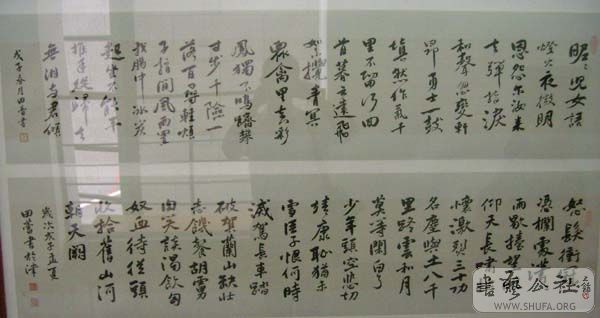 昵〻兒女語
燈火夜微明
恩怨尔汝来
去彈指淚
和聲忽變軒
昂勇士一鼓
填然作氣千
里不留行回
首暮雲遠飛
絮攪青冥
眾禽里真彩
鳳獨不鳴躋攀
寸步千險一
落百尋輕煩
子指間風雨置
我腸中冰炭
起坐不能平
推手從歸去
無泪与君傾
戊子春月田蕾書
怒髮衝冠
憑欄處瀟
雨歇擡望
仰天長嘯
懷激烈三十功
名塵與土八千
里路雲和月
莫等閒白了
少年頭空悲切
靖康恥猶未
雪臣子恨何時
滅駕長車踏
破賀蘭山缺壯
志饑餐胡虜
肉笑談渴飲匈
奴血待從頭
收拾舊山河
朝天闕
歲次戊子孟夏
田蕾書於津
書藝公社
WWW.SHUFA.ORG